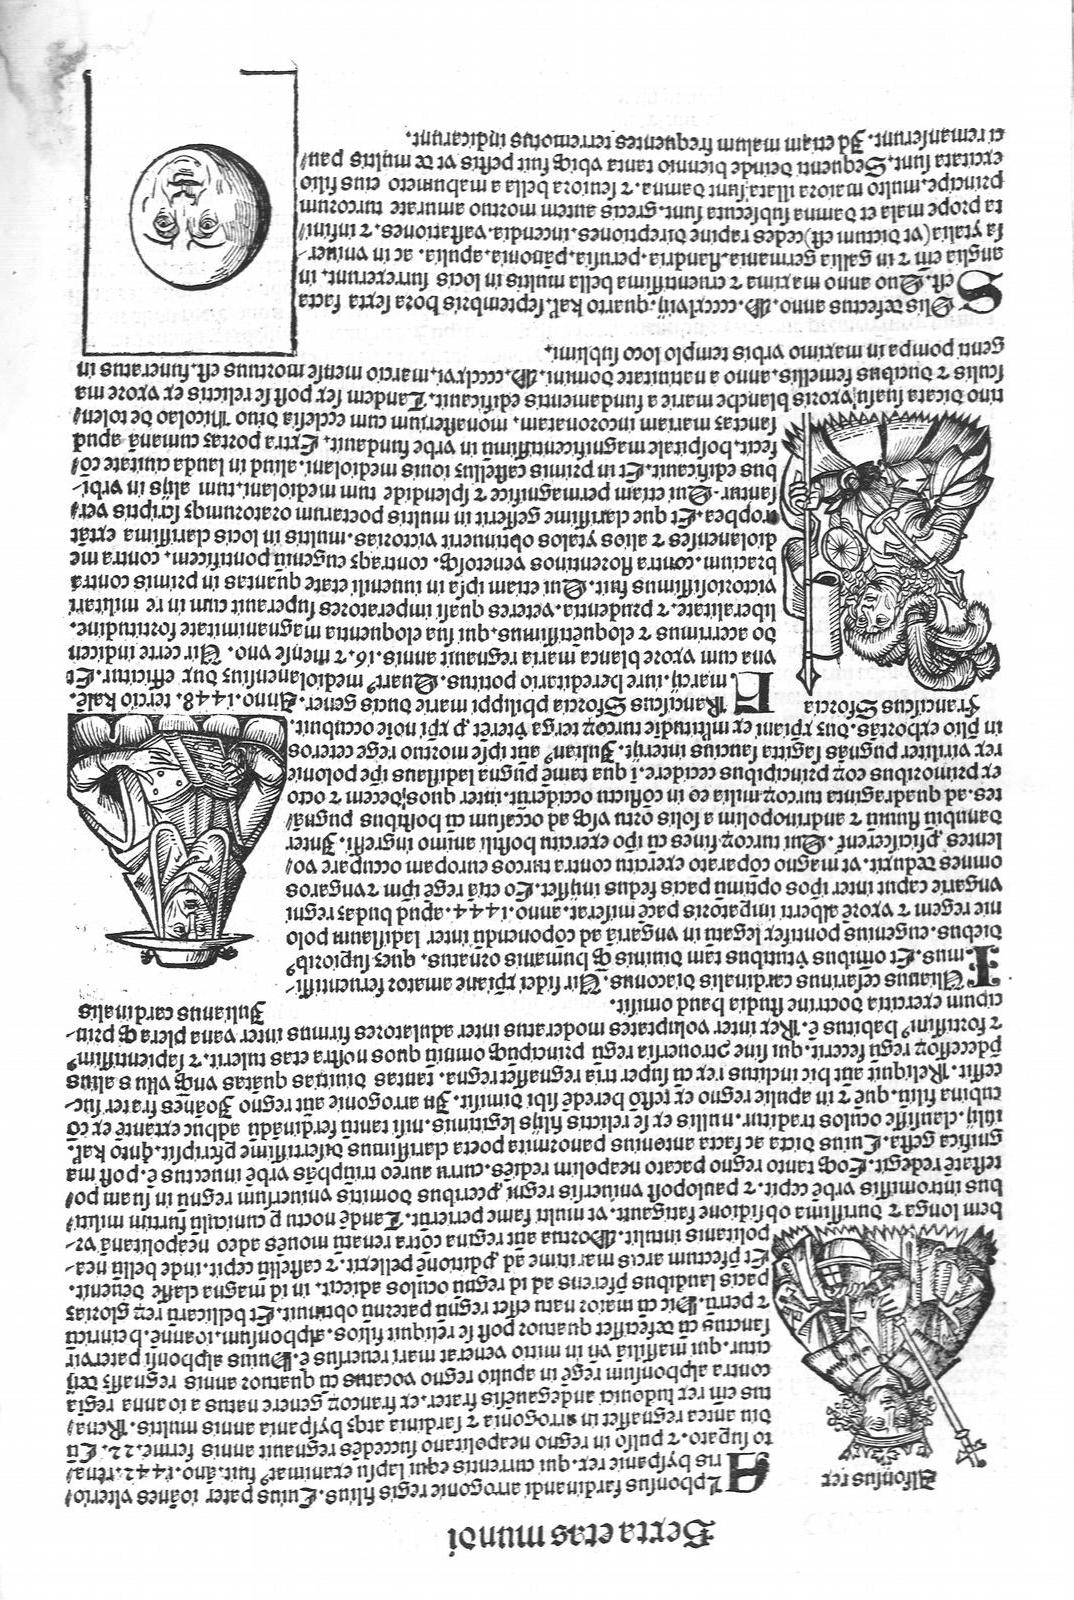 Sexta etas mundi
Alfonsus rex
Alphonsus fardinandi arrogonie regis filius. Cuius pater ioānes vlterio/
ris hyspanie rex, qui currentis equi lapsu exanimatꝰ fuit. āno .1442. rena/
to fugato. ⁊ pulso in regno neapolitano succedēs regnauit annis ferme .22. Cū
diu antea regnasset in arrogonia ⁊ sardinia atqꝫ hyspania annis multis. Rena/
tus em̄ rex ludouici andegauēsis frater. ex francoꝝ genere natus a ioanna regīa
contra alphonsum regē in apulie regno vocatus cū quatuor annis regnasset
citur. qui massiliā vn̄ in nimo venerat mari reuersus ē. Duius alphonsi pater vir
sanctus cū decessisset quatuor post se reliquit filios. alphonsum. ioannē. henricū
⁊ petrū. Hic cū maior natu esset regnū paternū obtinuit. Et bellicaꝝ rex glorias
pacis laudibus p̄ferens ad id regnū oculos adiecit. in id magna classe deuenit.
Et p̄fectum arcis maritime ad p̄ditionē pellexit. ⁊ castellū cepit. inde bellū nea/
politanis intulit. Mortua aūt regina cōtra renatū mouēs adeo neapolitanā vr/
bem longa ⁊ durissima obsidione fatigauit. vt multi fame perierūt. Tandē noctu p̄ cuniculū furtim militi/
bus intromissis vrbē cepit. ⁊ paulopost vniuersis regni p̄ceribus domitis vniuersum regnū in suam po/
testatē redegit. Eoqꝫ tanto regno pacato neapolim rediēs. curru aureo triūphās vrbē inuectus ē. post ma
gnifica gesta. Cuius dicta ac facta antonius panormita poeta clarissimus disertissime p̄scripsit. qnto kaꝉ.
iulij. clarissime oculos traditur. nullis ex se relictis filijs legitimis. nisi tantū ferdinādū adhuc extantē ex cō
cubina filiū. quē ⁊ in apulie regno ex testō heredē sibi dimisit. In arrogonie aūt regno Ioānes frater suc/
cessit. Reliquū aūt hic inclitus rex cū super tria regnasset regna. tantas diuitias quātas vnqꝫ vllus alius
p̄decessoꝝ regū fecerit. qui sine ꝯtrouersia regū principūqꝫ omniū quos nostra etas tulerit. ⁊ sapientissimꝰ
⁊ fortissimꝰ habitus ē. Rex inter voluptates moderatus inter adulatores firmus inter vana pleraqꝫ prin/
cipum exercitia doctrine studia haud omisit.
Iulianus cardinalis
Iulianus cesarinus cardinalis diaconus. Vir fidei xp̄iane amator feruentissi/
mus. Et omībus v̄tutibus tam diuinis qꝫ humanis ornatus. ques superioribꝰ
diebus. eugenius pontifex legatū in vngariā ad cōponendū inter ladislaum polo
nie regem ⁊ vxorē alberti imꝑatoris pacē miserat. anno .1444. apud budaꝫ regni
vngarie caput inter ip̄os optimū pacis fedus iniisset. Eo etiā regē ip̄m ⁊ vngaros
omnes reduxit. vt magno cōparato exercitu contra turcos europam occupare vo/
lentes ꝓficiscerent. Qui turcoꝝ fines cū ip̄o exercitu hostili animo ingressi. Inter
danubiū flumē ⁊ andrinopolim a solis ortu vsqꝫ ad occasum cū hostibus pugnā/
tes. ad quadraginta turcoꝝ milia eo in cōflictu occiderūt. inter quos decem ⁊ octo
ex primoribus eoꝝ principibus cecidere. ī qua tamē pugna ladislaus ip̄e polonie
rex viriliter pugnās sagitta saucius interijt. Iulianꝰ aūt ip̄se mortuo rege ceteros
in p̄lio exhortās. dux xp̄iani ex multitudīe turcoꝝ terga p̄beret p̄ xp̄i noīe occubuit.
Franciscus Sforcia
Franciscus Sforcia philippi marie ducis gener. Anno .1448. tercio kaleñ.
marcij. iure hereditario potitus. Quartꝰ mediolanensiū dux efficitur. Et
vna cum vxore blanca maria regnauit annis .16. ⁊ mense vno. Vir certe in dicen
do acerrimus ⁊ eloquentissimus. qui sua eloquentia magnanimitate fortitudine.
liberalitate. ⁊ prudentia. veteres quasi imperatores superauit cun in re militari
victoriosissimus fuit. Qui etiam ipsa in iuuenili etate quantas in primis contra
bracium. contra florentinos venetosqꝫ. contraqꝫ eugeniū pontificem. contra me
diolanenses ⁊ alios ytalos obtinuerit victorias. multis in locis clarissima extāt
trophea. Et que clarissime gesserit in multis poetarum oratorumqꝫ scriptis ver/
santur. Qui etiam permagnifice ⁊ splendide tum mediolani. tum alijs in vrbi/
bus edificauit. Et in primis castellū iouis mediolani. aliud in lauda ciuitate cō/
fecit. hospitale magnificentissimū in vrbe fundauit. Extra portaꝫ cumanā apud
sanctaꝫ mariam incoronatam. monasterium cum ecclesia diuo Nicolao de tolen/
tino dicata suasu vxoris blanche marie a fundamentis edificauit. Tandem sex post se relictis ex vxore ma
sculis ⁊ duabus femellis. anno a natiuitate domini .M.cccclxvi. marcio mense mortuus est. funeratus in
genti pompa in maximo vrbis templo loco sublimi.
Solis defectus anno .M.cccclxiij. quarto kaꝉ. septembris hora sexta facta
est. Quo anno maxima ⁊ cruentissima bella multis in locis surrexerunt. in
anglia em̄ ⁊ in gallia germania. flandria. prussia. pānonia. apulia. ac in vniuer/
sa ytalia (vt dictum est) cedes rapine direptiones. incendia. vastationes. ⁊ infini/
ta prope mala et damna subsecuta sunt. grecis autem mortuo amurate turcorum
principe. multo maiora illata sunt damna. ⁊ seuiora bella a mahumeto eius filio
excitata sunt. Sequenti deinde biennio tanta vbiqꝫ fuit pestis vt de multis pau/
ci remanserunt. Id etiam malum frequentes terremotus indicarunt.